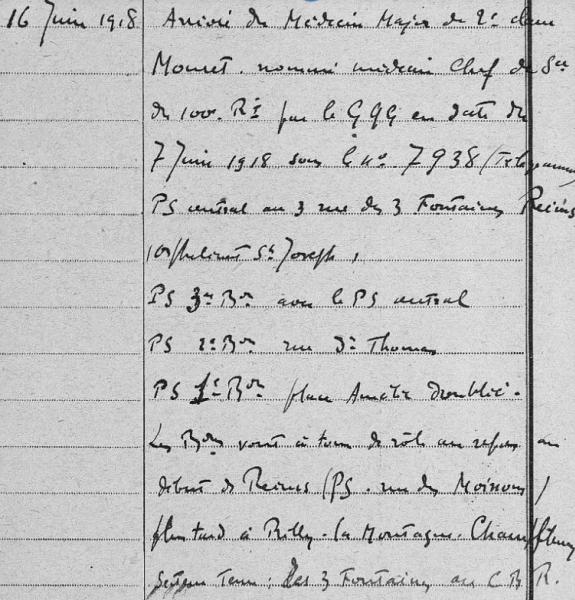 16 Juin 1918 Arrivé du Médecin Major de 2e classe
Mouret. nommé médecin Chef de Sce
du 100e RI par le GQG en date du
7 Juin 1918 sous le no 7938 (Télégramme
PS central au 3 rue des 3 Fontaines Reims
(orphelinat St Joseph,
PS 3e Bon avec le PS central
PS 2e Bon rue St Thomas
PS 1er Bon place Amélie Doublié.
Les Bons vont à tour de rôle au repos au
début de Reims (PS. rue des Moissons)
plus tard à Rilly-la Montagne. Champfleury
Les 3 Fontaines au C B R.